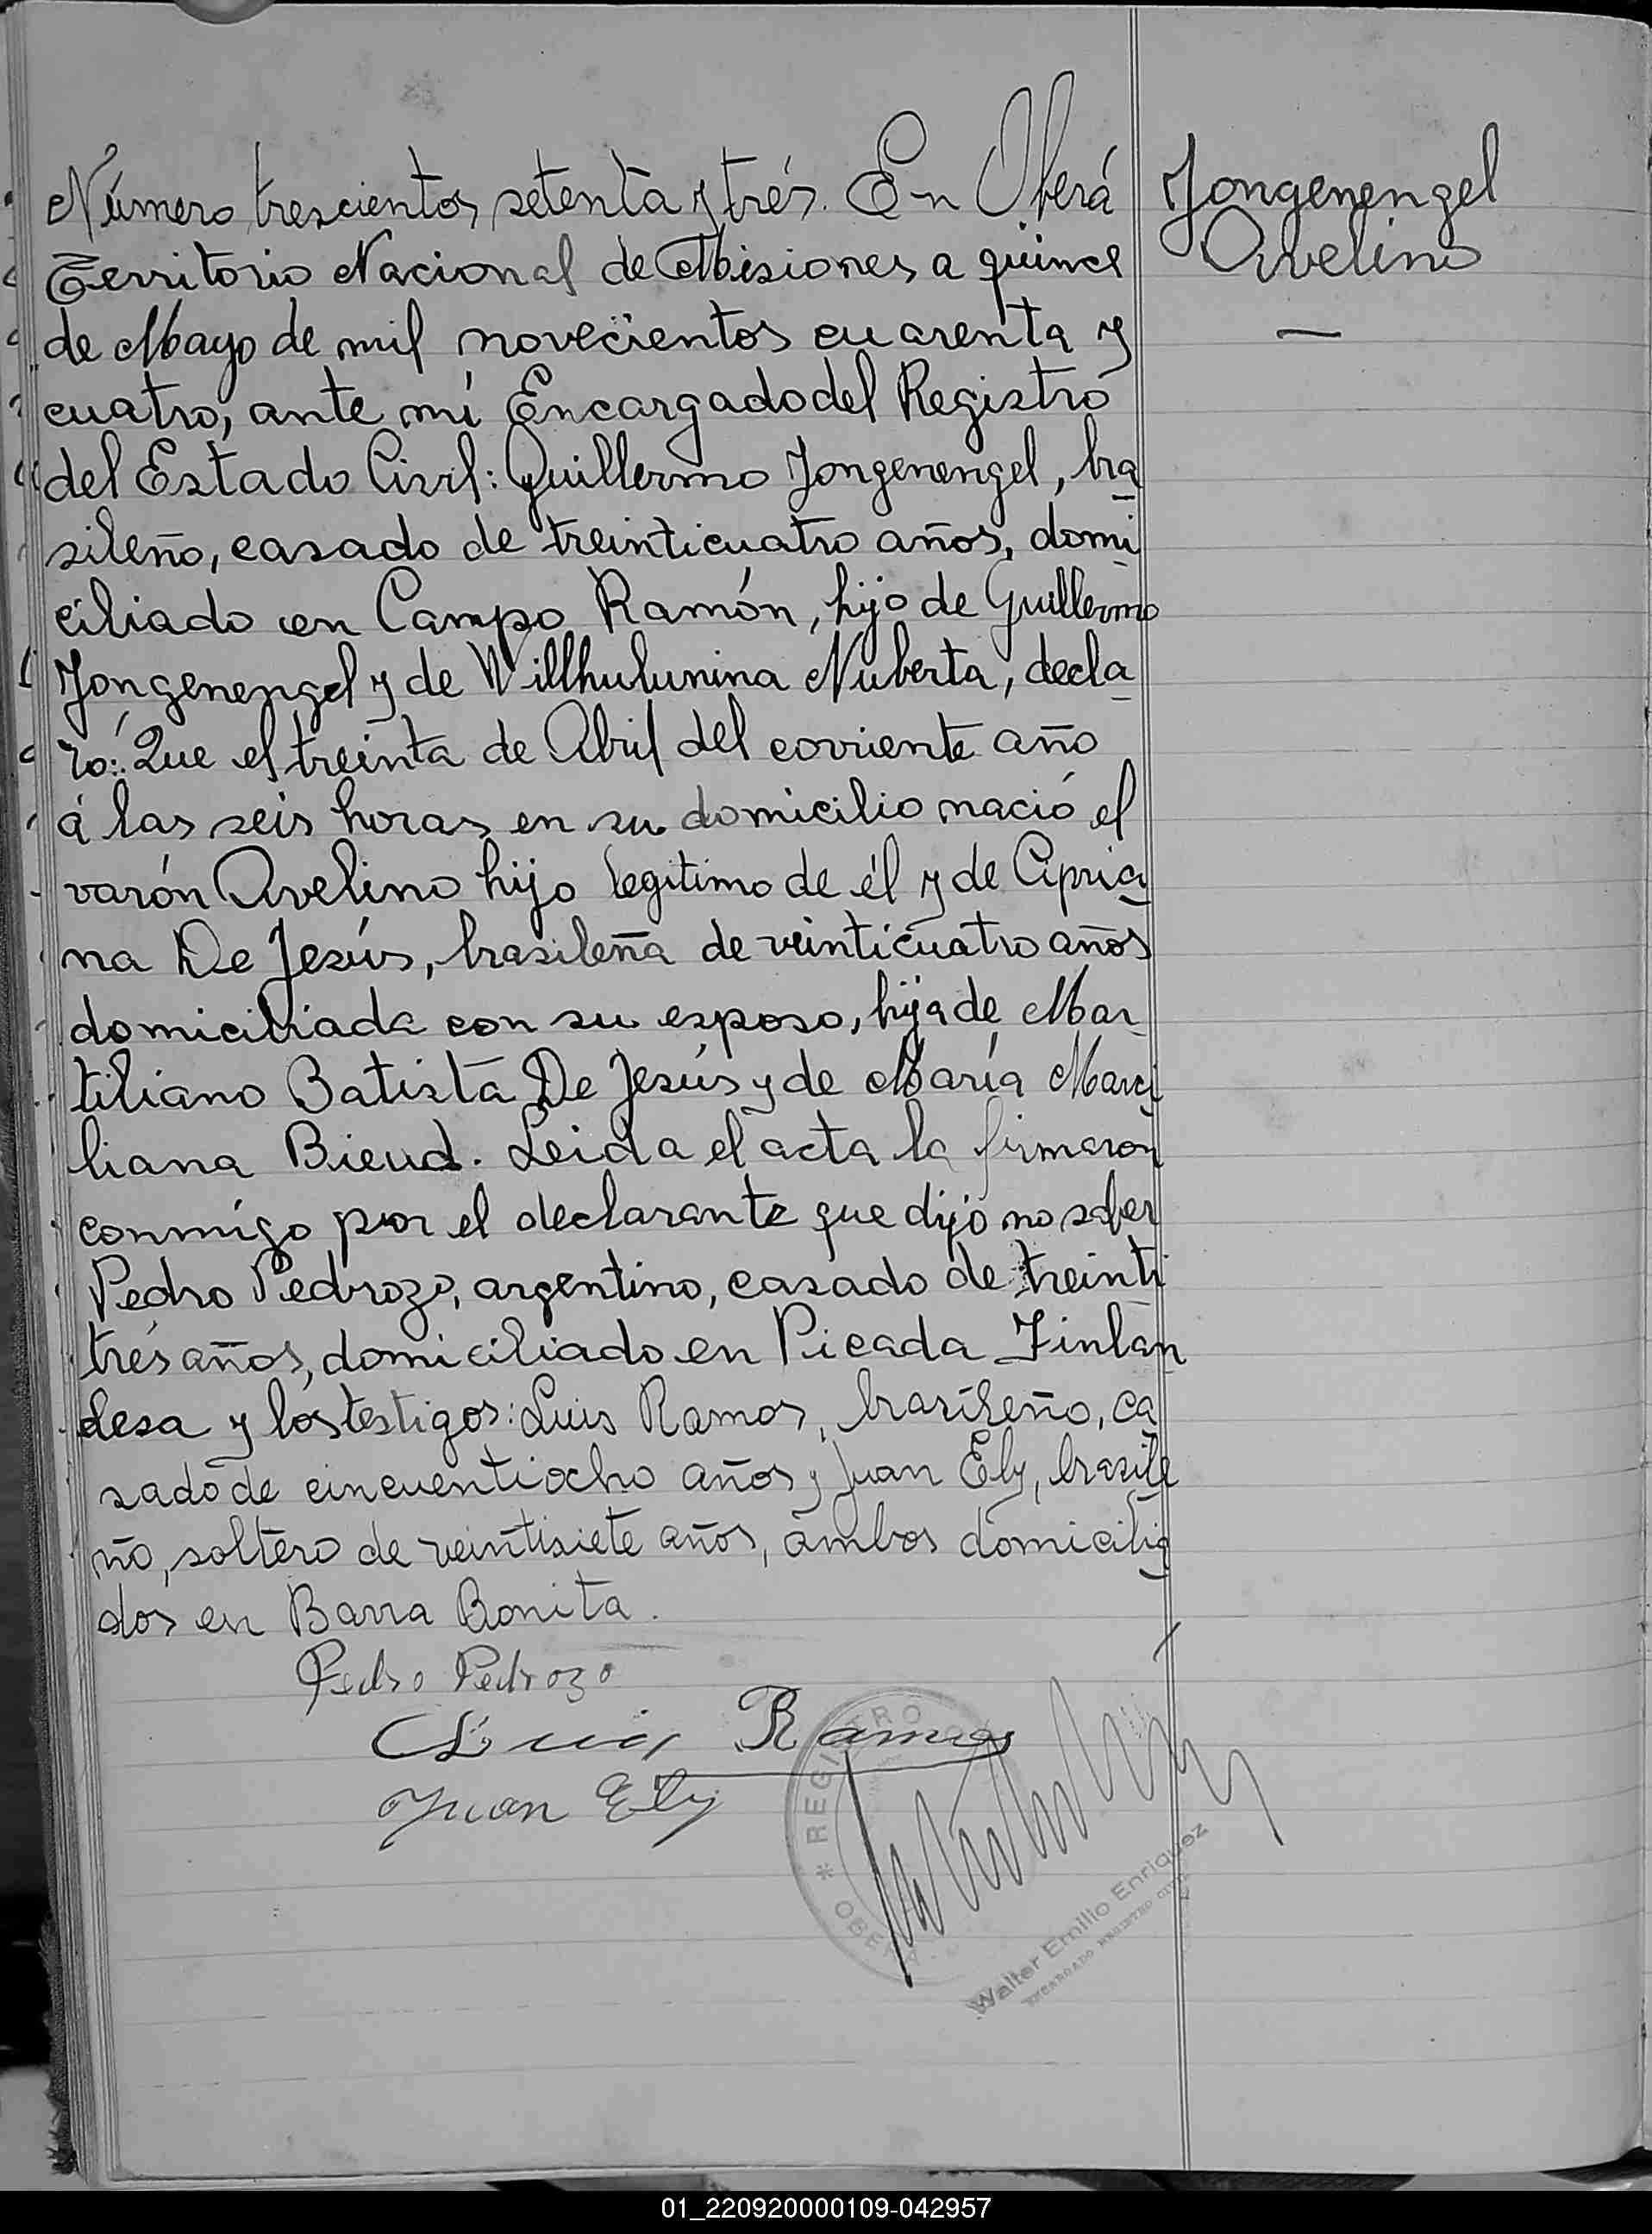 Número trescientos setenta y trés. En Oberá
Territorio Nacional de Misiones a quince
de Mayo de mil novecientos cuarenta y
cuatro, ante mí Encargado del Registro
del Estado Civil: Guillermo Jongenengel, bra
sileño, casado de treinticuatro años, domi
ciliado en Campo Ramón, hijo de Guillermo
Jongenengel y de Willhulunina Nuberta, decla
ró: Que el treinta de Abril del corriente año
á las seis horas en su domicilio nació el
varón Avelino hijo legitimo de él y de Cipria
na De Jesús, brasileña de veinticuatro años
domiciliada con su esposo, hija de Mar
tiliano Batista De Jesús y de María Marci
liana Bieud. Leida el acta la firmaron
conmigo por el declarante que dijo no saber
Pedro Pedrozo, argentino, casado de treinti
trés años, domiciliado en Picada Finlan
desa y los testigos: Luis Ramos, brasileño, ca
sado de cincuentiocho años y Juan Ely, brasile
ño, soltero de veintisiete años, ambos domicilia
dos en Barra Bonita.
Pedro Pedrozo
Luis Ramos
Juan Ely
Jongenengel
Avelino
* REGISTRO
OBERA
Walter Emilio Enriquez
ENCARGADO REGISTRO CIVIL
01_220920000109-042957